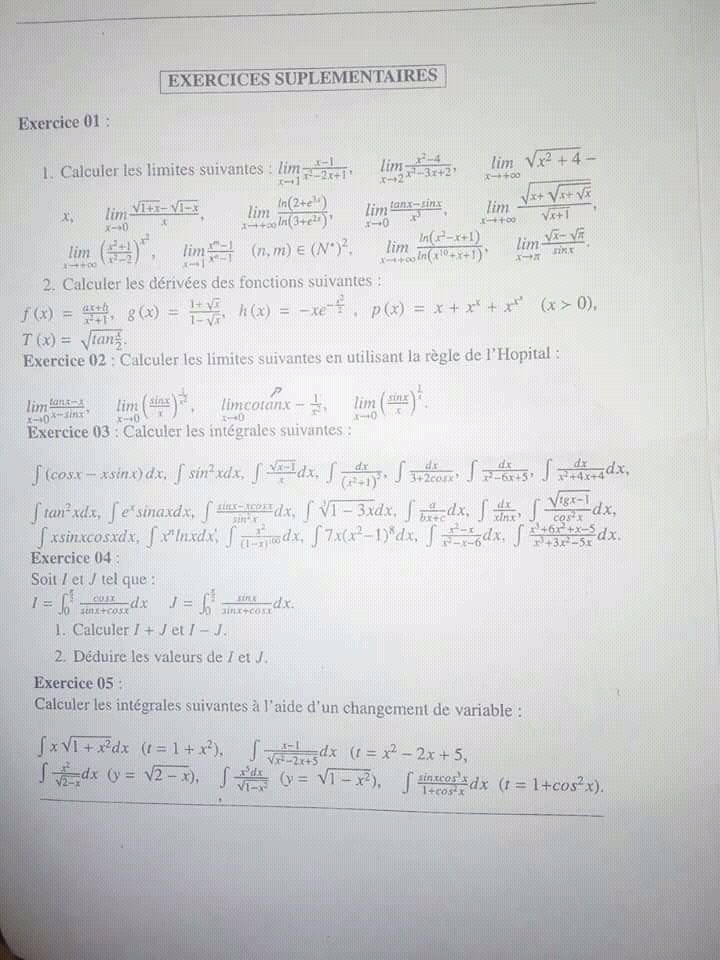 EXERCICES SUPLEMENTAIRES
Exercice 01 :
1. Calculer les limites suivantes : lim x→1 (x−1)/(x²−2x+1), lim x→2 (x²−4)/(x²−3x+2), lim x→+∞ √(x²+4) −
x, lim x→0 (√(1+x)−√(1−x))/x, lim x→+∞ ln(2+e^(3x))/ln(3+e^(2x)), lim x→0 (tanx−sinx)/x³, lim x→+∞ √(x+√(x+√x))/√(x+1),
lim x→+∞ ((x²+1)/(x²−2))^(x²), lim x→1 (x^m−1)/(x^n−1) (n, m) ∈ (N*)², lim x→+∞ ln(x²−x+1)/ln(x¹⁰+x+1), lim x→π (√x−√π)/sinx.
2. Calculer les dérivées des fonctions suivantes :
f(x) = (ax+b)/(x²+1), g(x) = (1+√x)/(1−√x), h(x) = −xe^(−x²/2), p(x) = x + x^x + x^(x^x) (x > 0),
T(x) = √(tan x/2).
Exercice 02 : Calculer les limites suivantes en utilisant la règle de l'Hopital :
lim x→0 (tanx−x)/(x−sinx), lim x→0 (sinx/x)^(1/x²), lim x→0 cotanx − 1/x², lim x→0 (sinx/x)^(1/x).
Exercice 03 : Calculer les intégrales suivantes :
∫(cosx − xsinx)dx, ∫sin²xdx, ∫(√(x−1)/x)dx, ∫dx/(x²+1)², ∫dx/(3+2cosx), ∫dx/(x²−6x+5), ∫dx/(x²+4x+4)dx,
∫tan²xdx, ∫e^x sinaxdx, ∫((sinx−xcosx)/sin²x)dx, ∫∛(1−3x)dx, ∫(a/(bx+c))dx, ∫dx/(xlnx), ∫(√(tgx−1)/cos²x)dx,
∫xsinxcosxdx, ∫x^n lnxdx, ∫(x²/(1−x)¹⁰⁰)dx, ∫7x(x²−1)⁸dx, ∫((x²−x)/(x²−x−6))dx, ∫((x³+6x²+x−5)/(x³+3x²−5x))dx.
Exercice 04 :
Soit I et J tel que :
I = ∫₀^(π/2) (cosx/(sinx+cosx))dx J = ∫₀^(π/2) (sinx/(sinx+cosx))dx.
1. Calculer I + J et I − J.
2. Déduire les valeurs de I et J.
Exercice 05 :
Calculer les intégrales suivantes à l'aide d'un changement de variable :
∫x√(1+x²)dx (t = 1 + x²), ∫((x−1)/√(x²−2x+5))dx (t = x² − 2x + 5,
∫(x²/√(2−x))dx (y = √(2−x)), ∫x⁵dx/√(1−x²) (y = √(1−x²)), ∫(sinxcos³x/(1+cos²x))dx (t = 1+cos²x).